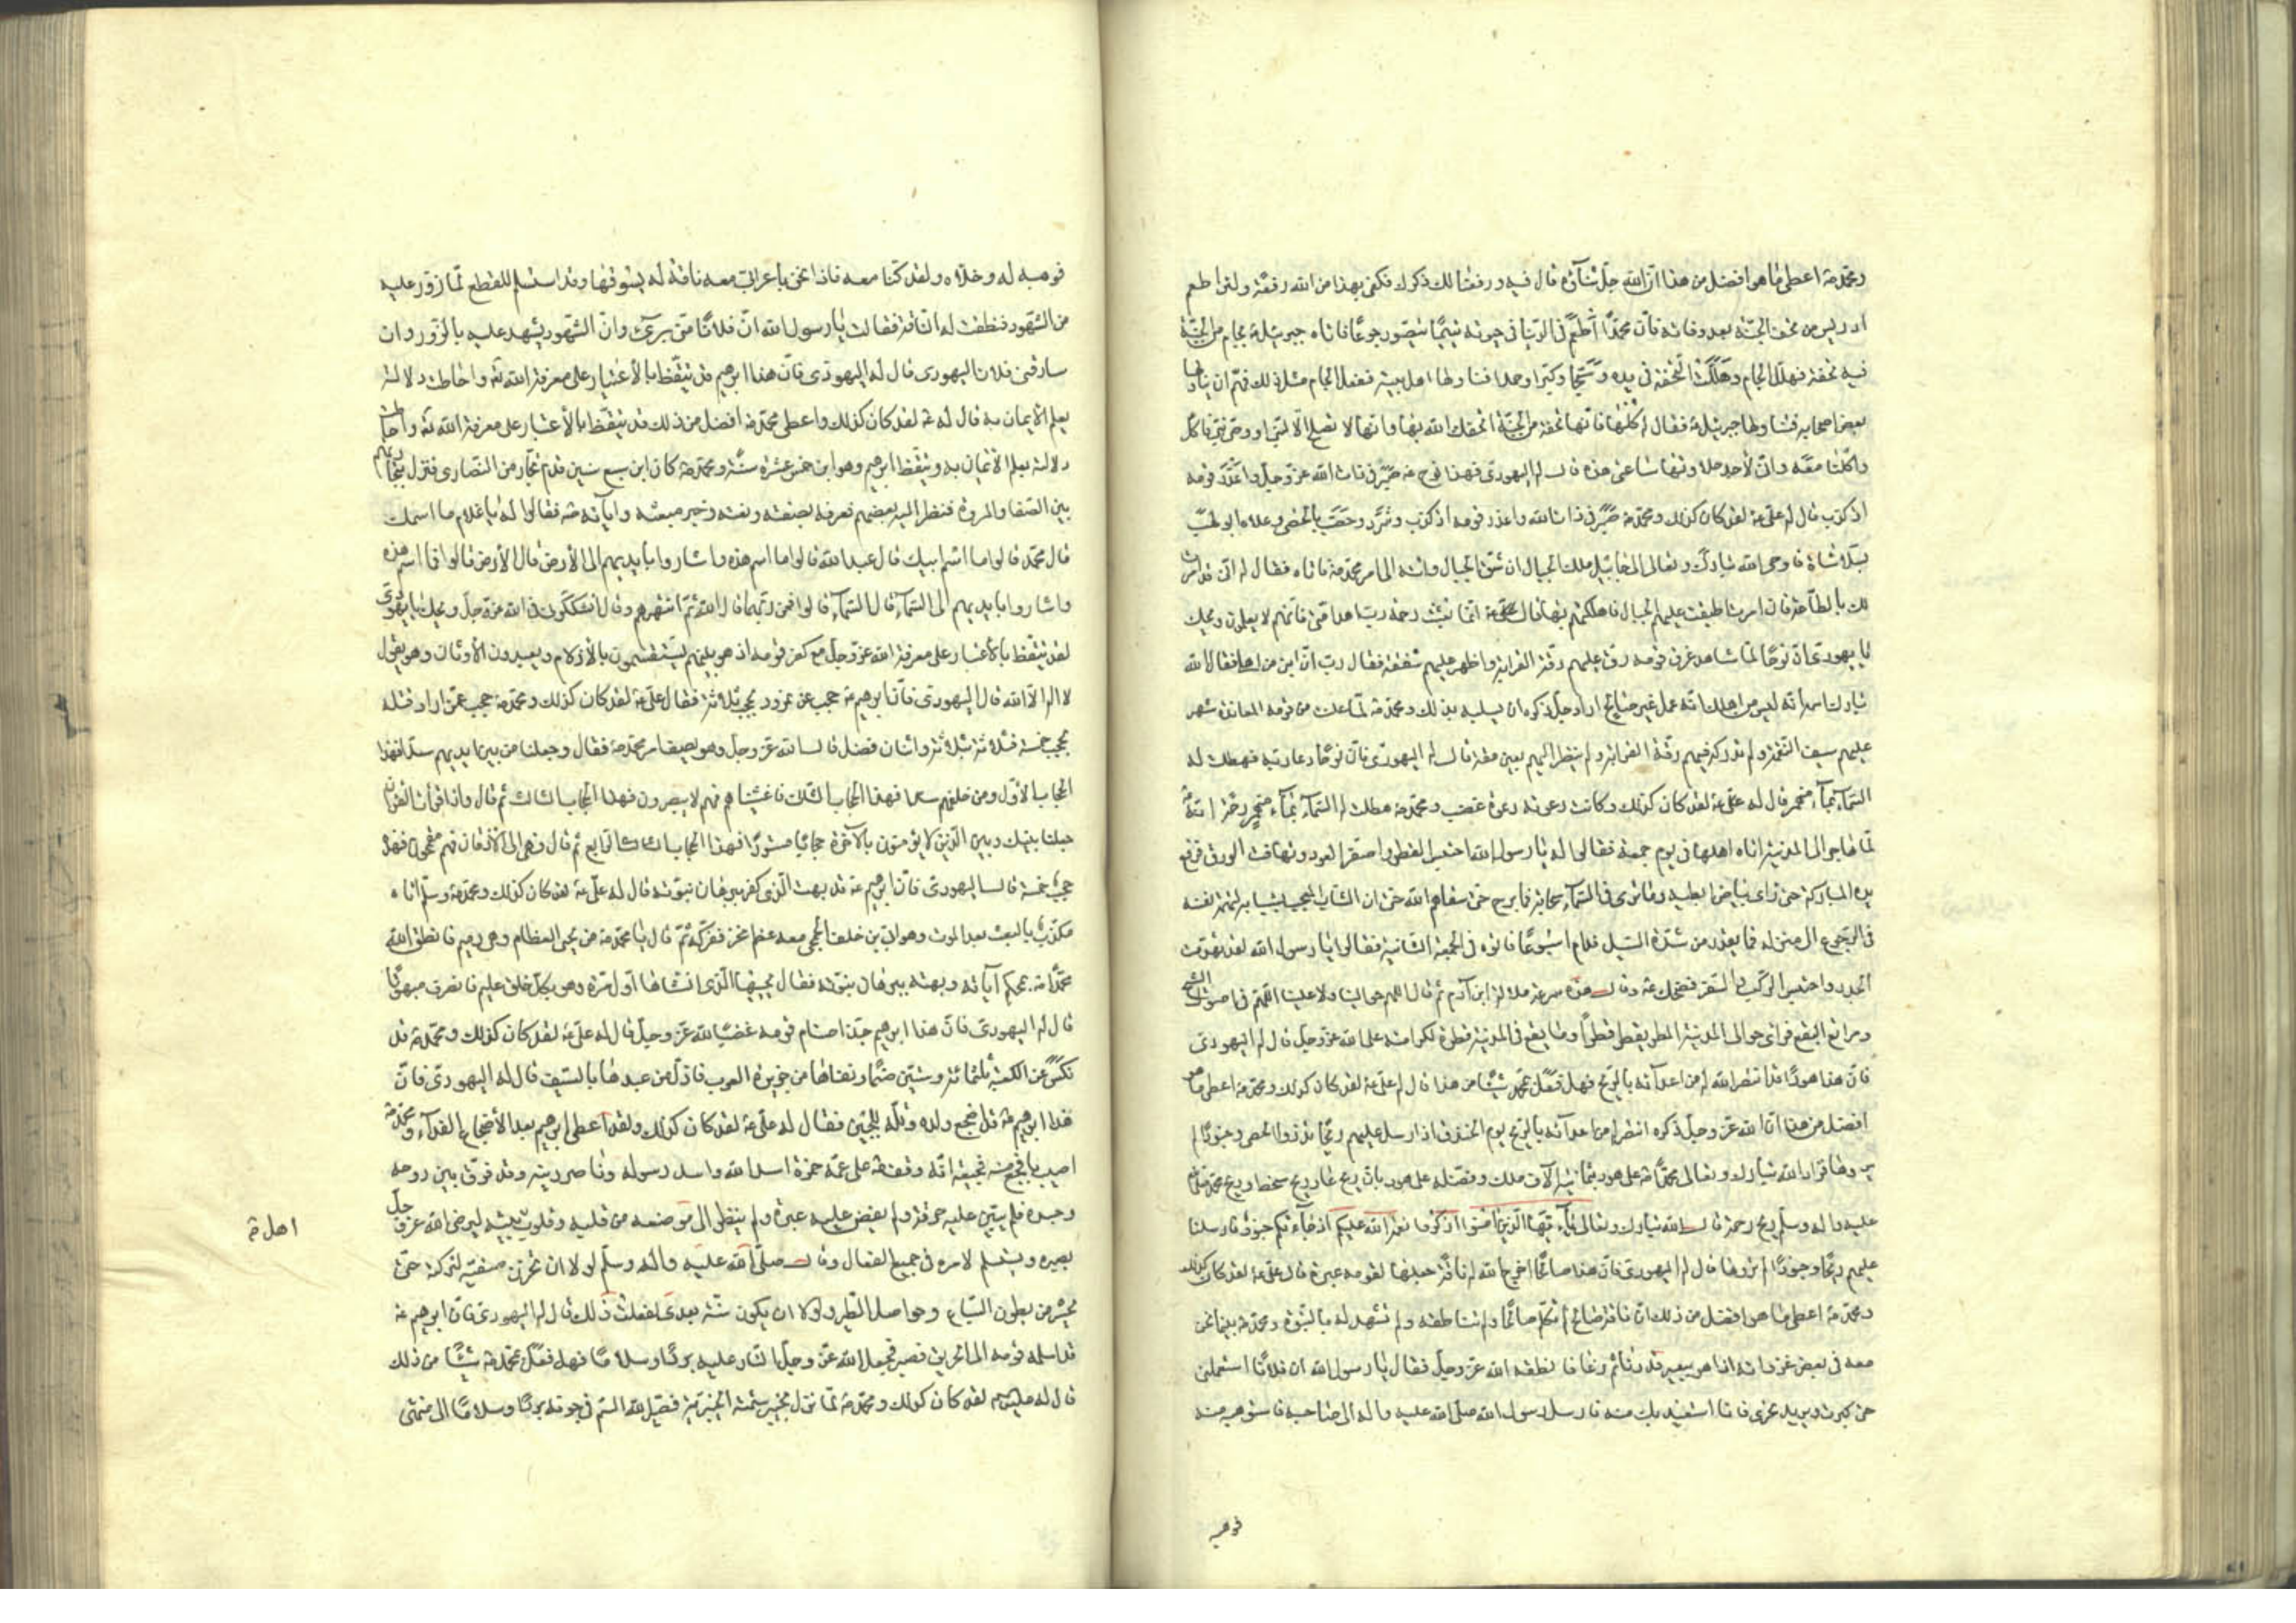 ومحمد ص اعطى ما هو افضل من هذا ان الله جل ثناؤه قال فيه ورفعنا لك ذكرك فكفى بهذا من الله رفعة ولئن اطعم
ادريس من تحف الجنة بعد وفاته فان محمدا اطعم فى الدنيا فى حيوته بينما يتضور جوعا فاتاه جبرئيل ع بجام من الجنة
فيه تحفة فهلل الجام وهللت التحفة فى يده وسبحا وكبرا وحمدا فناولها اهل بيته ففعل الجام مثل ذلك فهم ان يناولها
بعض اصحابه فتناولها جبرئيل ع فقال له كلها فانها تحفة من الجنة اتحفك الله بها وانها لا تصلح الا لنبى او وصى نبى فاكل
واكلنا معه وانى لاجد حلاوتها ساعتى هذه قال له اليهودى فهذا نوح ع صبر فى ذات الله عز وجل واعذر قومه
اذ كذب قال له على ع لقد كان كذلك ومحمد ص صبر فى ذات الله واعذر قومه اذ كذب وشرد وحصب بالحصى وعلاه ابو لهب
بسلا شاة فاوحى الله تبارك وتعالى الى جابيل ملك الجبال ان شق الجبال وانته الى امر محمد ص فاتاه فقال له انى قد امرت
لك بالطاعة فان امرت اطبقت عليهم الجبال فاهلكتهم بها قال ص انما بعثت رحمة رب اهد امتى فانهم لا يعلمون ويحك
يا يهودى ان نوحا لما شاهد غرق قومه رق عليهم رقة القرابة واظهر عليهم شفقة فقال رب ان ابنى من اهلى فقال الله
تبارك اسمه انه ليس من اهلك انه عمل غير صالح اراد جل ذكره ان يسليه بذلك ومحمد ص لما علنت من قومه المعاندة شهر
عليهم سيف النقمة ولم تدركه فيهم رقة القرابة ولم ينظر اليهم بعين مقة قال له اليهودى فان نوحا دعا ربه فهطلت له
السماء بماء منهمر قال له على ع لقد كان كذلك وكانت دعوته دعوة غضب ومحمد ص هطلت له السماء بماء منهمر رحمة انه ص
لما هاجر الى المدينة اتاه اهلها فى يوم جمعة فقالوا له يا رسول الله احتبس القطر واصفر العود وتهافت الورق فرفع
يده المباركة حتى راى بياض ابطيه وما ترى فى السماء سحابة فما برح حتى سقاهم الله حتى ان الشاب المعجب بشبابه لتهمه نفسه
فى الرجوع الى منزله فما يقدر من شدة السيل فدام اسبوعا فاتوه فى الجمعة الثانية فقالوا يا رسول الله لقد تهدمت
الجدر واحتبس الركب والسفر فضحك ع وقال هذه سرعة ملالة ابن آدم ثم قال اللهم حوالينا ولا علينا اللهم فى اصول الشيح
ومراتع البقع فرئى حوالى المدينة المطر يقطر قطرا وما يقع فى المدينة قطرة لكرامته على الله عز وجل قال له اليهودى
فان هذا هودا قد انتصر الله له من اعدائه بالريح فهل فعل بمحمد شيئا من هذا قال له على ع لقد كان كذلك ومحمد ص اعطى ما هو
افضل من هذا ان الله عز وجل ذكره انتصر له من اعدائه بالريح يوم الخندق اذ ارسل عليهم ريحا تذروا الحصى وجنودا لم
يروها فزاد الله تبارك وتعالى محمدا ص على هود بثمانية آلاف ملك وفضله على هود بان ريح عاد ريح سخط وريح محمد صلى الله
عليه واله وسلم ريح رحمة قال الله تبارك وتعالى يا ايها الذين امنوا اذكروا نعمة الله عليكم اذ جاءتكم جنود فارسلنا
عليهم ريحا وجنودا لم تروها قال له اليهودى فان هذا صالحا اخرج الله له ناقة جعلها لقومه عبرة قال على ع لقد كان كذلك
ومحمد ص اعطى ما هو افضل من ذلك ان ناقة صالح لم تكلم صالحا ولم تناطقه ولم تشهد له بالنبوة ومحمد ص بينما نحن
معه فى بعض غزواته اذا هو ببعير قد دنا ثم رغا فانطقه الله عز وجل فقال يا رسول الله ان فلانا استعملنى
حتى كبرت ويريد نحرى فانا استعيذ بك منه فارسل رسول الله صلى الله عليه واله الى صاحبه فاستوهبه منه
فوهبه
فوهبه له وخلاه ولقد كنا معه فاذا نحن باعرابى معه ناقة له يسوقها وقد استسلم للقطع لما زور عليه
من الشهود فنطقت له الناقة فقالت يا رسول الله ان فلانا منى برىء وان الشهود يشهد عليه بالزور وان
سارقى فلان اليهودى قال له اليهودى فان هذا ابرهيم قد تيقظ بالاعتبار على معرفة الله تع واحاطت دلالته
بعلم الايمان به قال له ع لقد كان كذلك واعطى محمد ص افضل من ذلك قد تيقظ بالاعتبار على معرفة الله تع واحاطت
دلالته بعلم الايمان به وتيقظ ابرهيم وهو ابن خمس عشرة سنة ومحمد ص كان ابن سبع سنين قدم تجار من النصارى فنزل بتجارتهم
بين الصفا والمروة فنظر اليه بعضهم فعرفه بصفته ونعته وخبر مبعثه واياته ص فقالوا له يا غلام ما اسمك
قال محمد قالوا ما اسم ابيك قال عبد الله قالوا ما اسم هذه واشاروا بايديهم الى الارض قال الارض قالوا فما اسم هذه
واشاروا بايديهم الى السماء قال السماء قالوا فمن ربهما قال الله ثم انتهرهم وقال اتشككوننى فى الله عز وجل ويحك يا يهودى
لقد تيقظ بالاعتبار على معرفة الله عز وجل مع كفر قومه اذ هو بينهم يستقسمون بالازلام ويعبدون الاوثان وهو يقول
لا اله الا الله قال اليهودى فان ابرهيم ع حجب عن نمرود بحجب ثلاثة فقال على ع لقد كان كذلك ومحمد ص حجب عمن اراد قتله
بحجب خمسة فثلاثة بثلاثة واثنان فضل قال الله عز وجل وهو يصف امر محمد ص فقال وجعلنا من بين ايديهم سدا فهذا
الحجاب الاول ومن خلفهم سدا فهذا الحجاب الثانى فاغشيناهم فهم لا يبصرون فهذا الحجاب الثالث ثم قال واذا قرأت القران
جعلنا بينك وبين الذين لا يؤمنون بالآخرة حجابا مستورا فهذا الحجاب الرابع ثم قال فهى الى الاذقان فهم مقمحون فهذه
حجب خمسة قال اليهودى فان ابرهيم ع قد بهت الذى كفر ببرهان نبوته قال له على ع لقد كان كذلك ومحمد ص وسلم اتاه
مكذب بالبعث بعد الموت وهو ابى بن خلف الجمحى معه عظم نخر ففركه ثم قال يا محمد ص من يحيى العظام وهى رميم فانطق الله
محمدا ص بمحكم آياته وبهته ببرهان نبوته فقال يحييها الذى انشاها اول مرة وهو بكل خلق عليم فانصرف مبهوتا
قال له اليهودى فان هذا ابرهيم جذ اصنام قومه غضبا لله عز وجل قال له على ع لقد كان كذلك ومحمد ص قد
نكس عن الكعبة ثلثمائة وستين صنما ونفاها من جزيرة العرب واذل من عبدها بالسيف قال له اليهودى فان
هذا ابرهيم ع قد اضجع ولده وتله للجبين فقال له على ع لقد كان كذلك ولقد اعطى ابرهيم بعد الاضجاع الفداء ومحمد ص
اصيب بافجع منه فجيعة انه وقف ص على عمه حمزة اسد الله واسد رسوله وناصر دينه وقد فرق بين روحه
وجسده فلم يبين عليه حرقة ولم يفض عليه عبرة ولم ينظر الى موضعه من قلبه وقلوب بيته ليرضى الله عز وجل
اهل ص
بصبره ويستسلم لامره فى جميع الفعال وقال صلى الله عليه واله وسلم لولا ان تحزن صفية لتركته حتى
يحشر من بطون السباع وحواصل الطير ولولا ان يكون سنة بعدى لفعلت ذلك قال له اليهودى فان ابرهيم ع
قد اسلمه قومه الى الحريق فصبر فجعل الله عز وجل النار عليه بردا وسلاما فهل فعل بمحمد ص شيئا من ذلك
قال له على ع لقد كان كذلك ومحمد ص لما نزل بخيبر سمته الخيبرية فصير الله السم فى جوفه بردا وسلاما الى منتهى